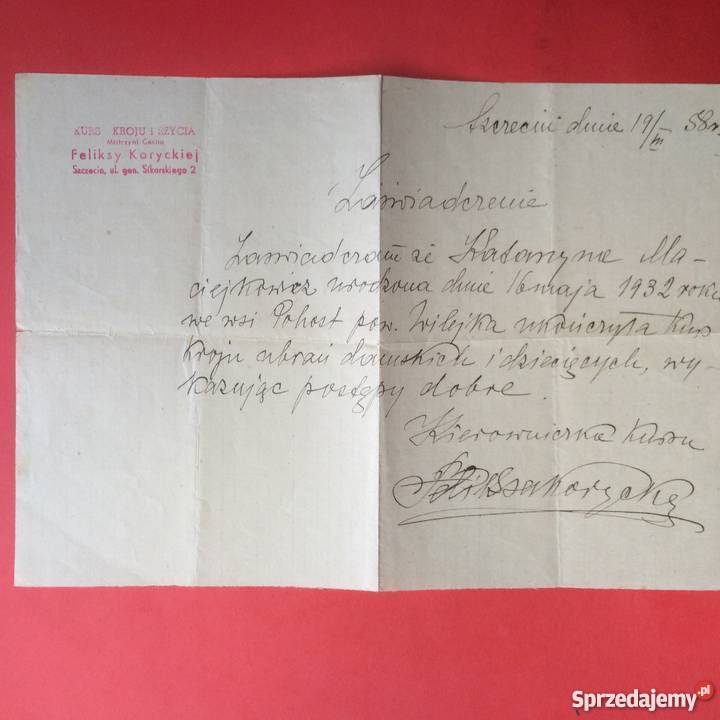 KURS KROJU i SZYCIA
Mistrzyni Cechu
Feliksy Koryckiej
Szczecin, ul. gen. Sikorskiego 2
Szczecin dnia 19/III 58
Zaświadczenie
Zaświadczam że Katarzyna Ma-
ciejkowicz urodzona dnia 16 maja 1932 roku
we wsi Pohost pow. Wilejka ukończyła Kurs
Kroju ubrań damskich i dziecięcych, wy-
kazując postępy dobre.
Kierowniczka Kursu
Feliksa Korycka
Sprzedajemy.pl